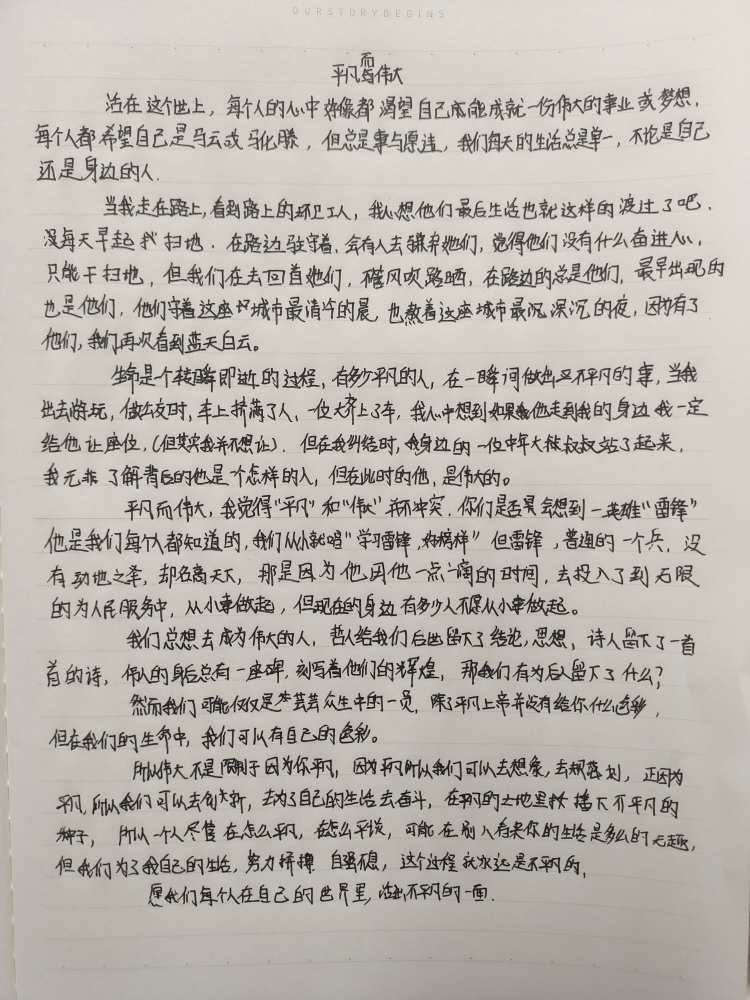 OURSTORYBEGINS
平凡而伟大
活在这个世上，每个人的心中好像都渴望自己底能成就一份伟大的事业或梦想，
每个人都希望自己是马云或马化腾，但总是事与原违，我们每天的生活总是单一，不论是自己
还是身边的人.
当我走在路上，看到路上的环卫工人，我心想他们最后生活也就这样的渡过了吧.
没每天早起扫地.在路边驻守着，会有人去嫌弃她们，觉得他们没有什么奋进心，
只能干扫地，但我们在去回首她们，风吹路晒，在路边的总是他们，最早出现的
也是他们，他们守着这座城市最清冷的晨，也熬着这座城市最沉深沉的夜，因为有了
他们，我们再次看到蓝天白云。
生命是个转瞬即逝的过程，有多少平凡的人，在一瞬间做出又不平凡的事，当我
出去游玩，做公交时，车上挤满了人，一位大爷上了车，我心中想到如果他走到我的身边我一定
给他让座位，(但其实我并不想让).但在我纠结时，我身边的一位中年大叔叔站了起来，
我无非了解背后的他是一个怎样的人，但在此时的他，是伟大的。
平凡而伟大，我觉得“平凡”和“伟大”并不冲突.你们是否会想到一英雄“雷锋”
他是我们每个人都知道的，我们从小就唱“学习雷锋，好榜样”但雷锋，普通的一个兵，没
有动地之举，却名高天下，那是因为他用他一点一滴的时间，去投入了到无限
的为人民服务中，从小事做起，但现在的身边有多少人不愿从小事做起。
我们总想去成为伟大的人，哲人给我们后世留下了结论，思想，诗人留下了一首
首的诗，伟人的身后总有一座碑，刻写着他们的辉煌，那我们有为后人留下了什么?
然而我们可能仅仅是芸芸众生中的一员，除了平凡上帝并没有给你什么色彩，
但在我们的生命中，我们可以有自己的色彩。
所以伟大不是限制于因为你平凡，因为平凡所以我们可以去想象，去规划，正因为
平凡，所以我们可以去创新，去为了自己的生活去奋斗，在平凡的土地里播下不平凡的
种子，所以一个人尽管在怎么平凡，在怎么平淡，可能在别人看来你的生活是多么的无趣，
但我们为了我自己的生活，努力拼搏自强不息，这个过程就永远是不平凡的，
愿我们每个人在自己的世界里，活出不平凡的一面.